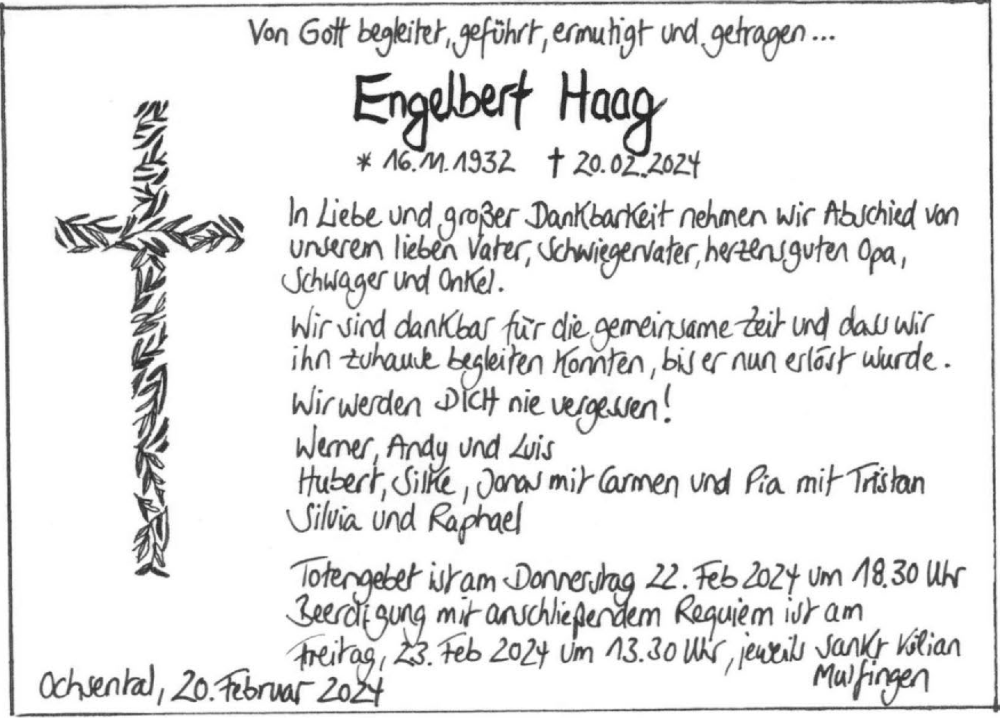 Von Gott begleitet, geführt, ermutigt und getragen...
Engelbert Haag
* 16.11.1932 † 20.02.2024
In Liebe und großer Dankbarkeit nehmen wir Abschied von
unserem lieben Vater, Schwiegervater, herzensguten Opa,
Schwager und Onkel.
Wir sind dankbar für die gemeinsame Zeit und dass wir
ihn zuhause begleiten konnten, bis er nun erlöst wurde.
Wir werden DICH nie vergessen!
Werner, Andy und Luis
Hubert, Silke, Jonas mit Carmen und Pia mit Tristan
Silvia und Raphael
Totengebet ist am Donnerstag 22. Feb 2024 um 18.30 Uhr
Beerdigung mit anschließendem Requiem ist am
Freitag, 23. Feb 2024 um 13.30 Uhr, jeweils Sankt Kilian
Mulfingen
Ochsental, 20. Februar 2024